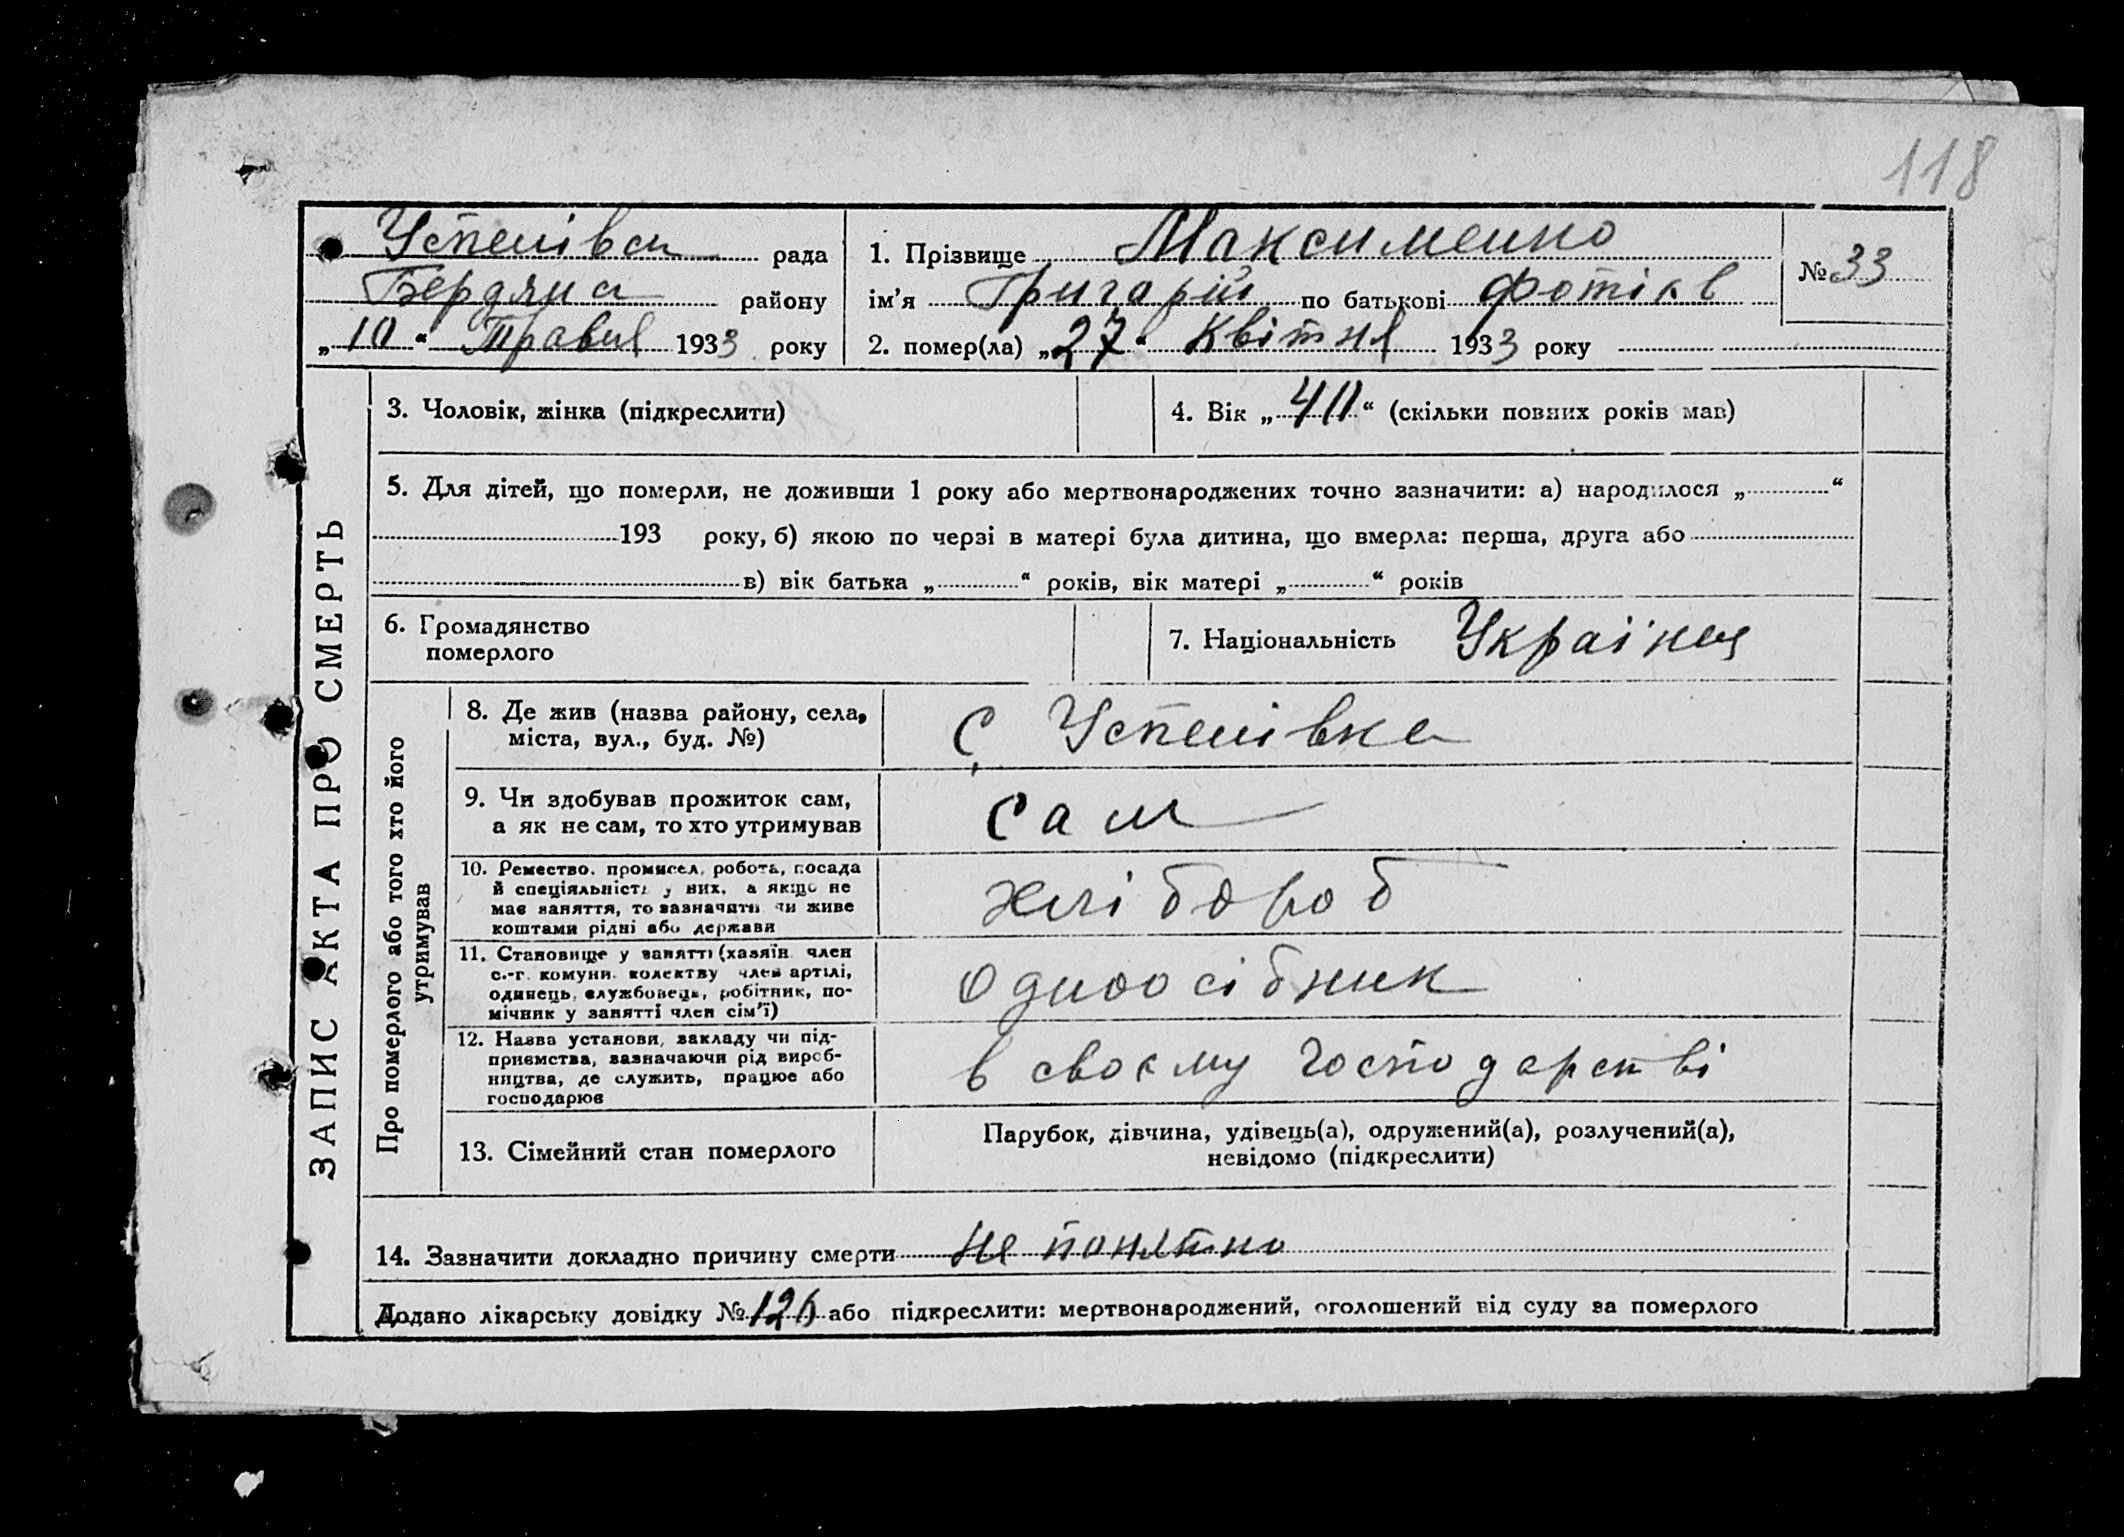 118
Успенівсь рада
Бердянс району
„10“ Травня 1933 року
1. Прізвище Максименко
ім’я Григорій по батькові Фотієв
2. помер(ла) „27“ Квітня 1933 року
№ 33
ЗАПИС АКТА ПРО СМЕРТЬ
3. Чоловік, жінка (підкреслити)
4. Вік „40“ (скільки повних років мав)
5. Для дітей, що померли, не доживши 1 року або мертвонароджених точно зазначити: а) народилося „ “
193 року, б) якою по черзі в матері була дитина, що вмерла: перша, друга або
в) вік батька „ “ років, вік матері „ “ років
6. Громадянство
померлого
7. Національність Українец
Про померлого або того хто його
утримував
8. Де жив (назва району, села,
міста, вул., буд. №)
с Успенівка
9. Чи здобував прожиток сам,
а як не сам, то хто утримував
сам
10. Ремество, промисел, робота, посада
й спеціяльність у них, а якщо не
має заняття, то зазначити чи живе
коштами рідні або держави
хлібороб
11. Становище у занятті (хазяїн, член
с.-г. комуни, колектву член артілі,
одинець, службовець, робітник, по-
мічник у занятті член сім’ї)
одноосібник
12. Назва установи, закладу чи під-
приємства, зазначаючи рід вироб-
ництва, де служить, працює або
господарює
в своєму господарстві
13. Сімейний стан померлого
Парубок, дівчина, удівець(а), одружений(а), розлучений(а),
невідомо (підкреслити)
14. Зазначити докладно причину смерти не понятно
Додано лікарську довідку № або підкреслити: мертвонароджений, оголошений від суду за померлого